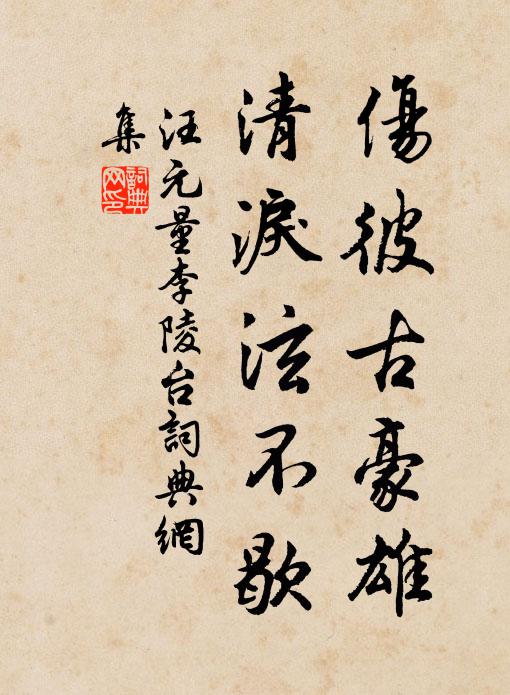 傷彼古豪雄
清淚泫不歇
汪元量李陵台詞典網
集
詞典網印